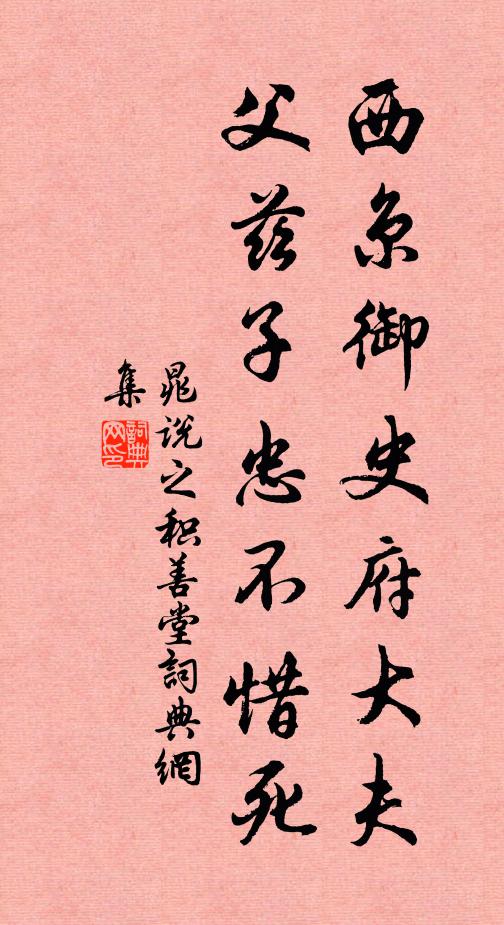 西京御史府大夫
父茲子忠不惜死
晁說之积善堂詞典網
集
詞典网印